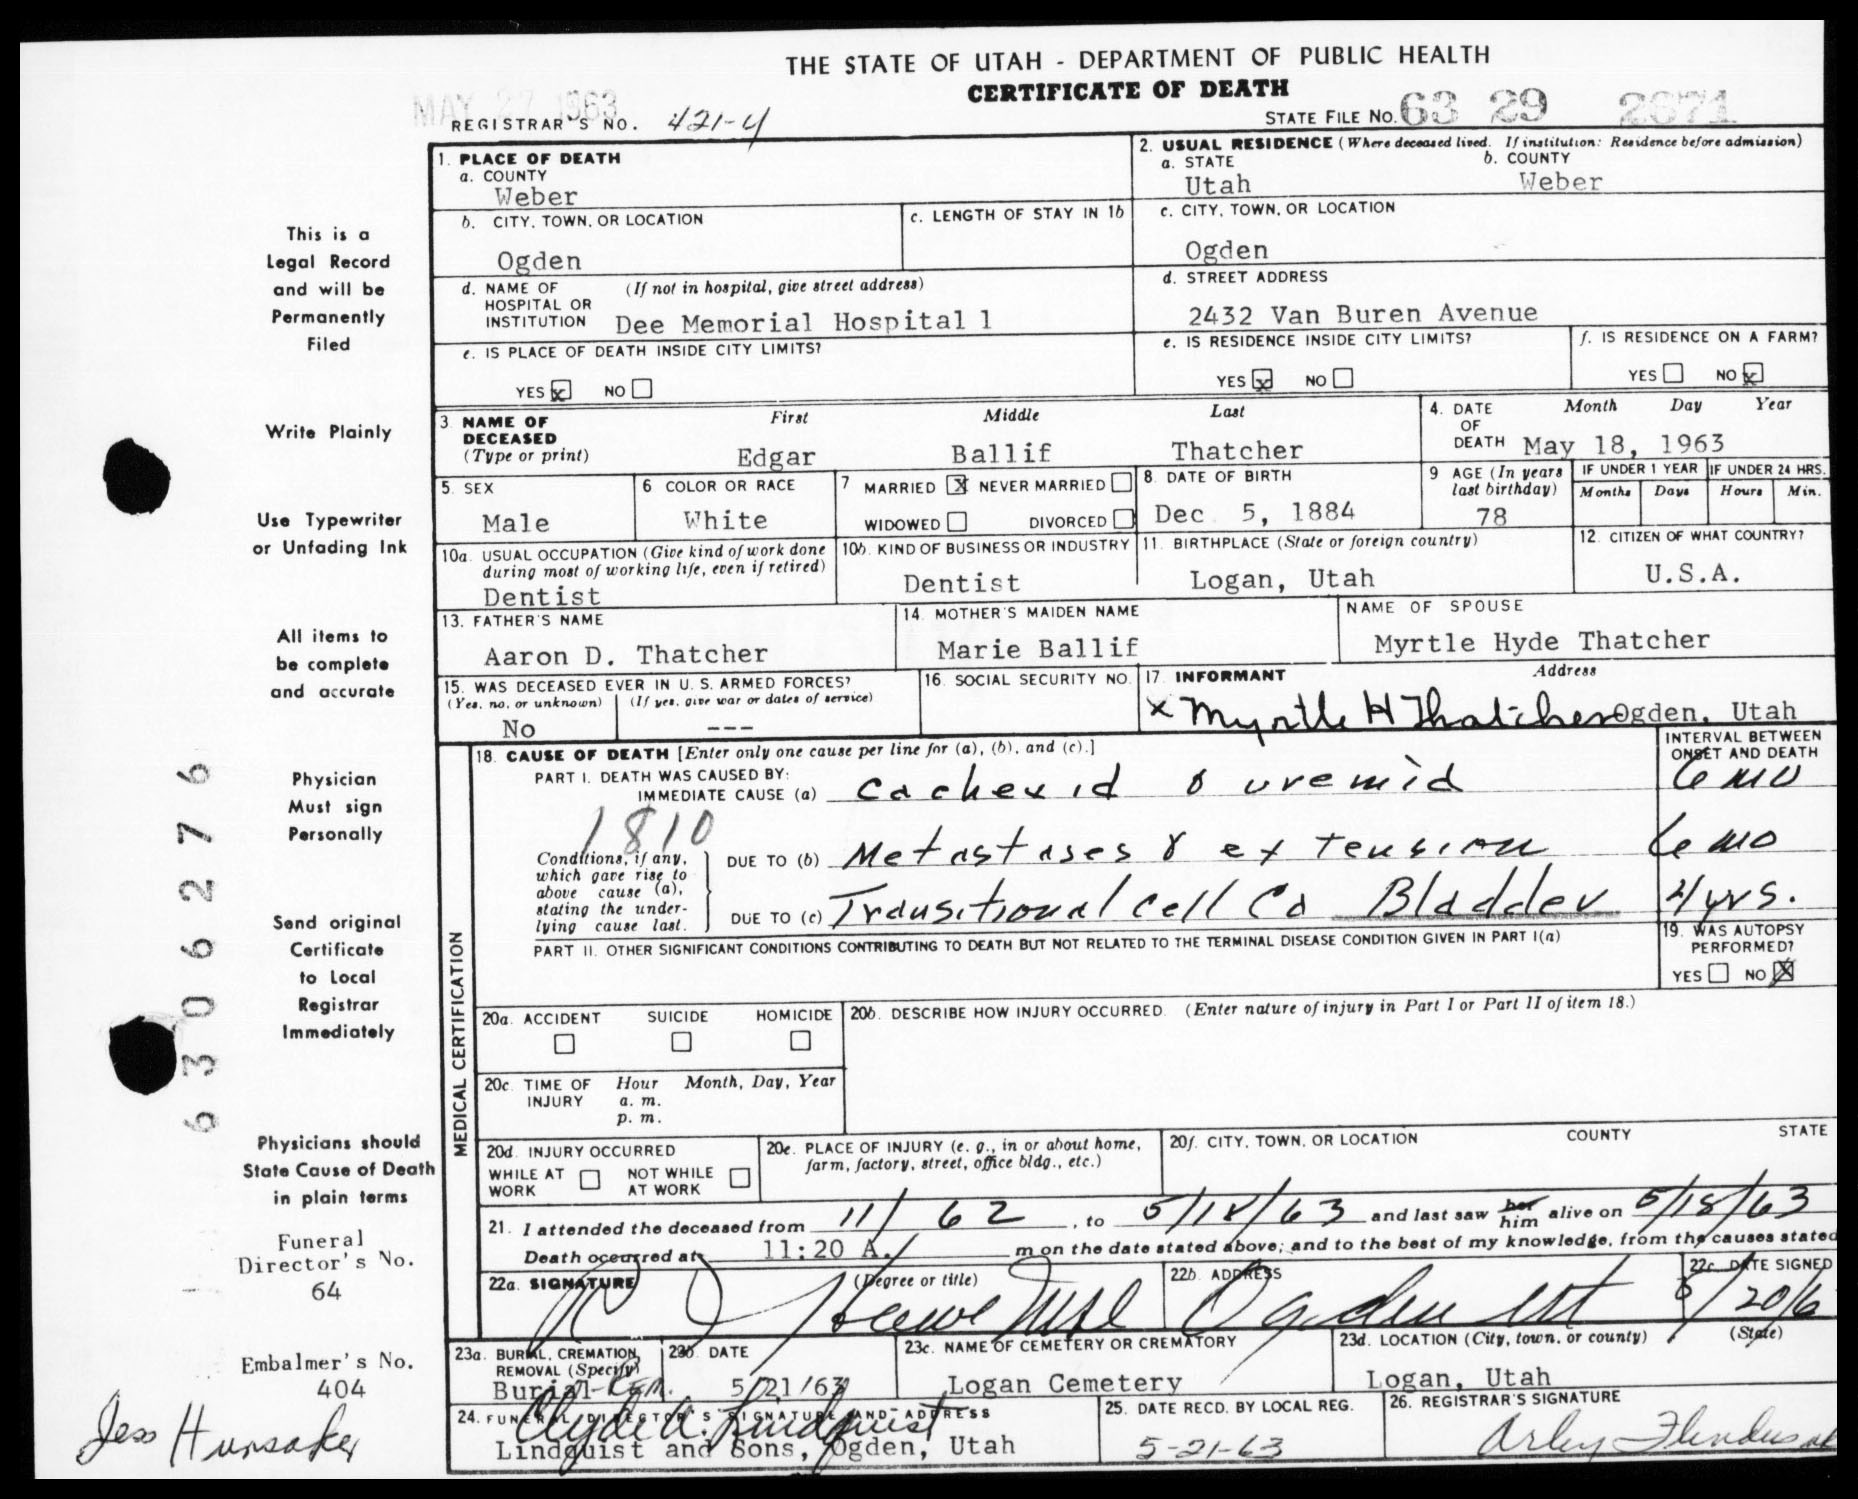 THE STATE OF UTAH - DEPARTMENT OF PUBLIC HEALTH
CERTIFICATE OF DEATH
MAY 27 1963
REGISTRAR'S NO. 421-4
STATE FILE NO. 63 29 2671
1. PLACE OF DEATH
a. COUNTY
Weber
2. USUAL RESIDENCE (Where deceased lived. If institution: Residence before admission)
a. STATE b. COUNTY
Utah Weber
b. CITY, TOWN, OR LOCATION
Ogden
c. LENGTH OF STAY IN 1b
c. CITY, TOWN, OR LOCATION
Ogden
d. NAME OF (If not in hospital, give street address)
HOSPITAL OR
INSTITUTION Dee Memorial Hospital 1
d. STREET ADDRESS
2432 Van Buren Avenue
e. IS PLACE OF DEATH INSIDE CITY LIMITS?
YES x NO
e. IS RESIDENCE INSIDE CITY LIMITS?
YES x NO
f. IS RESIDENCE ON A FARM?
YES NO x
3. NAME OF DECEASED (Type or print)
First Middle Last
Edgar Ballif Thatcher
4. DATE OF DEATH
Month Day Year
May 18, 1963
5. SEX
Male
6 COLOR OR RACE
White
7 MARRIED X NEVER MARRIED
WIDOWED DIVORCED
8. DATE OF BIRTH
Dec 5, 1884
9 AGE (In years last birthday)
78
IF UNDER 1 YEAR IF UNDER 24 HRS.
Months Days Hours Min.
10a. USUAL OCCUPATION (Give kind of work done
during most of working life, even if retired)
Dentist
10b. KIND OF BUSINESS OR INDUSTRY
Dentist
11. BIRTHPLACE (State or foreign country)
Logan, Utah
12. CITIZEN OF WHAT COUNTRY?
U.S.A.
13. FATHER'S NAME
Aaron D. Thatcher
14. MOTHER'S MAIDEN NAME
Marie Ballif
NAME OF SPOUSE
Myrtle Hyde Thatcher
15. WAS DECEASED EVER IN U. S. ARMED FORCES?
(Yes, no, or unknown) (If yes, give war or dates of service)
No ---
16. SOCIAL SECURITY NO.
17. INFORMANT Address
x Myrtle H Thatcher Ogden, Utah
18. CAUSE OF DEATH [Enter only one cause per line for (a), (b), and (c).]
INTERVAL BETWEEN
ONSET AND DEATH
PART I. DEATH WAS CAUSED BY:
IMMEDIATE CAUSE (a) Cachexia & uremia 6 mo
1810
Conditions, if any,
which gave rise to
above cause (a),
stating the under-
lying cause last.
DUE TO (b) Metastases & extension 6 mo
DUE TO (c) Transitional cell Ca Bladder 4 yrs.
PART II. OTHER SIGNIFICANT CONDITIONS CONTRIBUTING TO DEATH BUT NOT RELATED TO THE TERMINAL DISEASE CONDITION GIVEN IN PART I(a)
19. WAS AUTOPSY
PERFORMED?
YES NO X
MEDICAL CERTIFICATION
20a. ACCIDENT SUICIDE HOMICIDE
20b. DESCRIBE HOW INJURY OCCURRED. (Enter nature of injury in Part I or Part II of item 18.)
20c. TIME OF INJURY Hour Month, Day, Year
a. m.
p. m.
20d. INJURY OCCURRED
WHILE AT WORK NOT WHILE AT WORK
20e. PLACE OF INJURY (e. g., in or about home,
farm, factory, street, office bldg., etc.)
20f. CITY, TOWN, OR LOCATION COUNTY STATE
21. I attended the deceased from 11/ 62, to 5/18/63 and last saw her him alive on 5/18/63
Death occurred at 11:20 A. m on the date stated above; and to the best of my knowledge, from the causes stated
22a. SIGNATURE (Degree or title)
22b. ADDRESS
Ogden Ut
22c. DATE SIGNED
5/20/6
23a. BURIAL, CREMATION,
REMOVAL (Specify)
Burial-Rem.
23b. DATE
5/21/63
23c. NAME OF CEMETERY OR CREMATORY
Logan Cemetery
23d. LOCATION (City, town, or county) (State)
Logan, Utah
24. FUNERAL DIRECTOR'S SIGNATURE AND ADDRESS
Clyde A. Lindquist
Lindquist and Sons, Ogden, Utah
25. DATE RECD. BY LOCAL REG.
5-21-63
26. REGISTRAR'S SIGNATURE
Arley
This is a
Legal Record
and will be
Permanently
Filed
Write Plainly
Use Typewriter
or Unfading Ink
All items to
be complete
and accurate
Physician
Must sign
Personally
Send original
Certificate
to Local
Registrar
Immediately
Physicians should
State Cause of Death
in plain terms
Funeral
Director's No.
64
Embalmer's No.
404
Jess Hunsaker
6306276